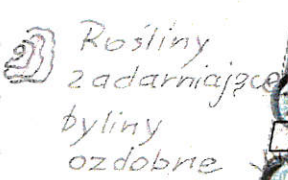 Rośliny
zadarniające
byliny
ozdobne